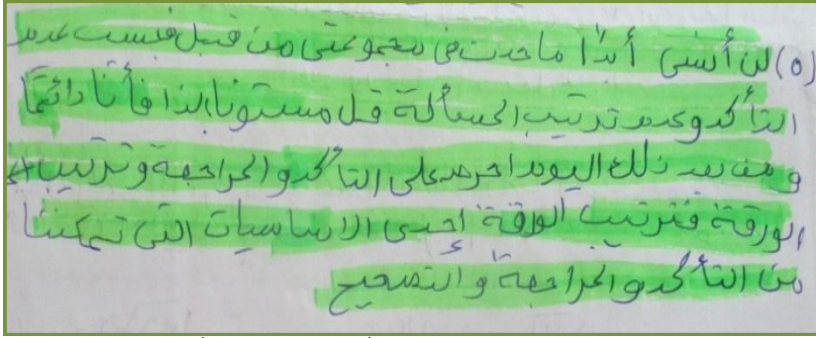 (٥) لن أنسى أبدًا ما حدث في مجموعتي من قبل فبسبب عدم
التأكد وعدم ترتيب المسألة قل مستونا لذا فأنا دائمًا
ومن بعد ذلك اليوم احرص على التأكد والمراجعة وترتيب
الورقة فترتيب الورقة إحدى الاساسيات التي تمكننا
من التأكد والمراجعة والتصحيح